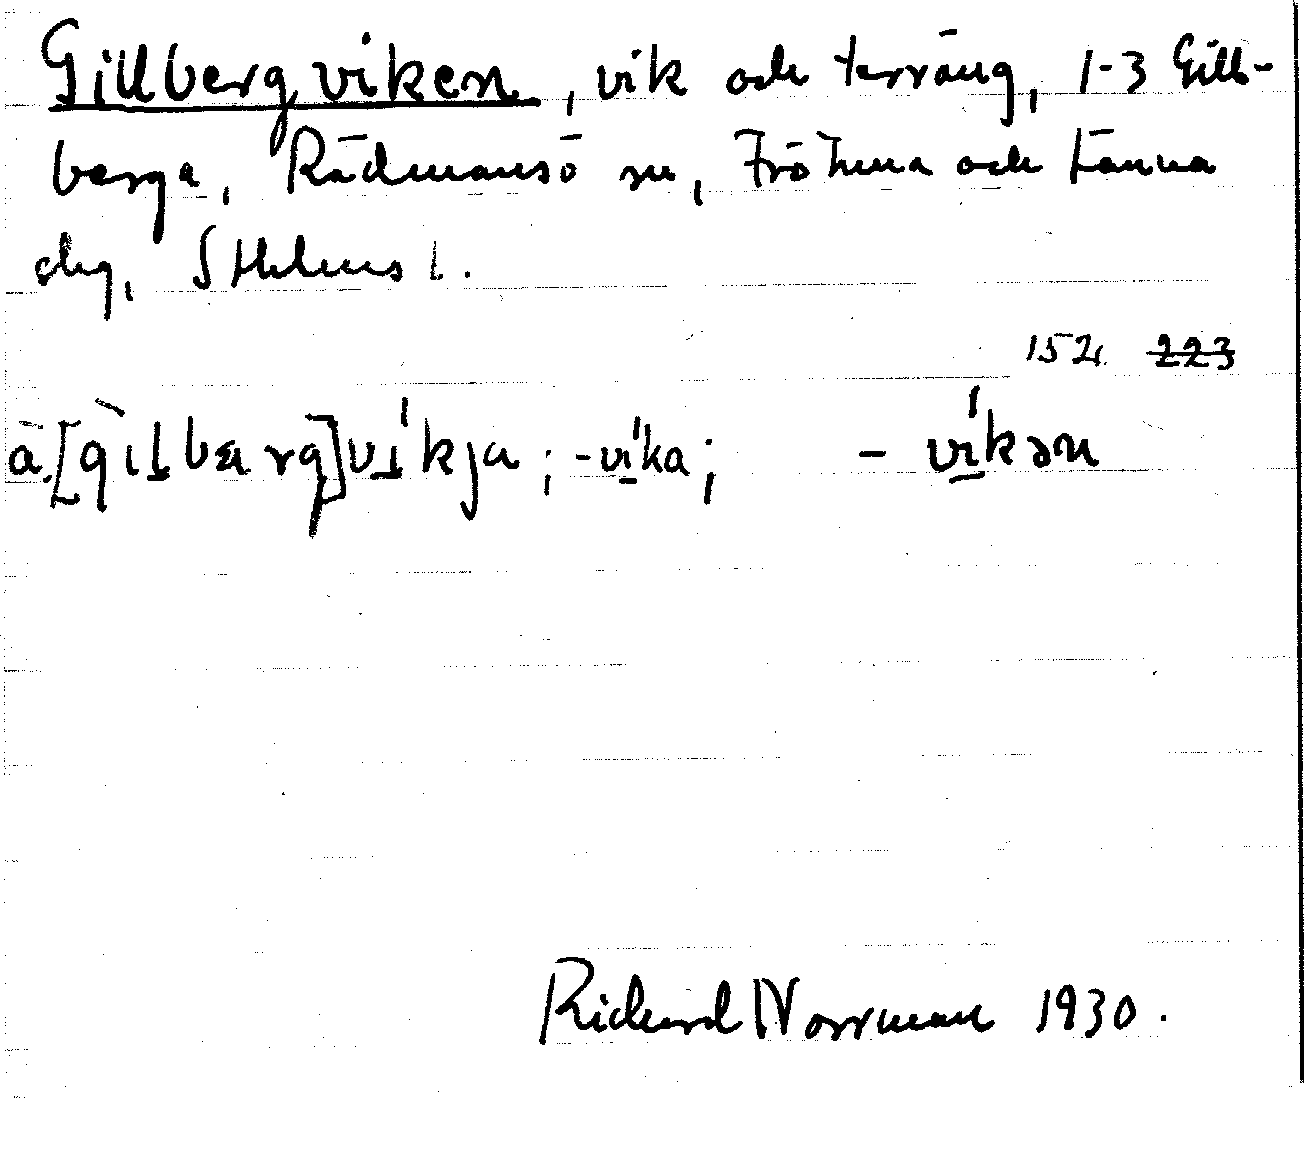 Gillbergviken, vik och terräng, 1-3 Gill-
berga, Rådmansö sn, Frötuna och Länna
slg, Sthlms l.
152 2̶2̶3̶
a. [gilbærg]vi'kja; -vi'ka; - vi'kən
Richard Norrman 1930.